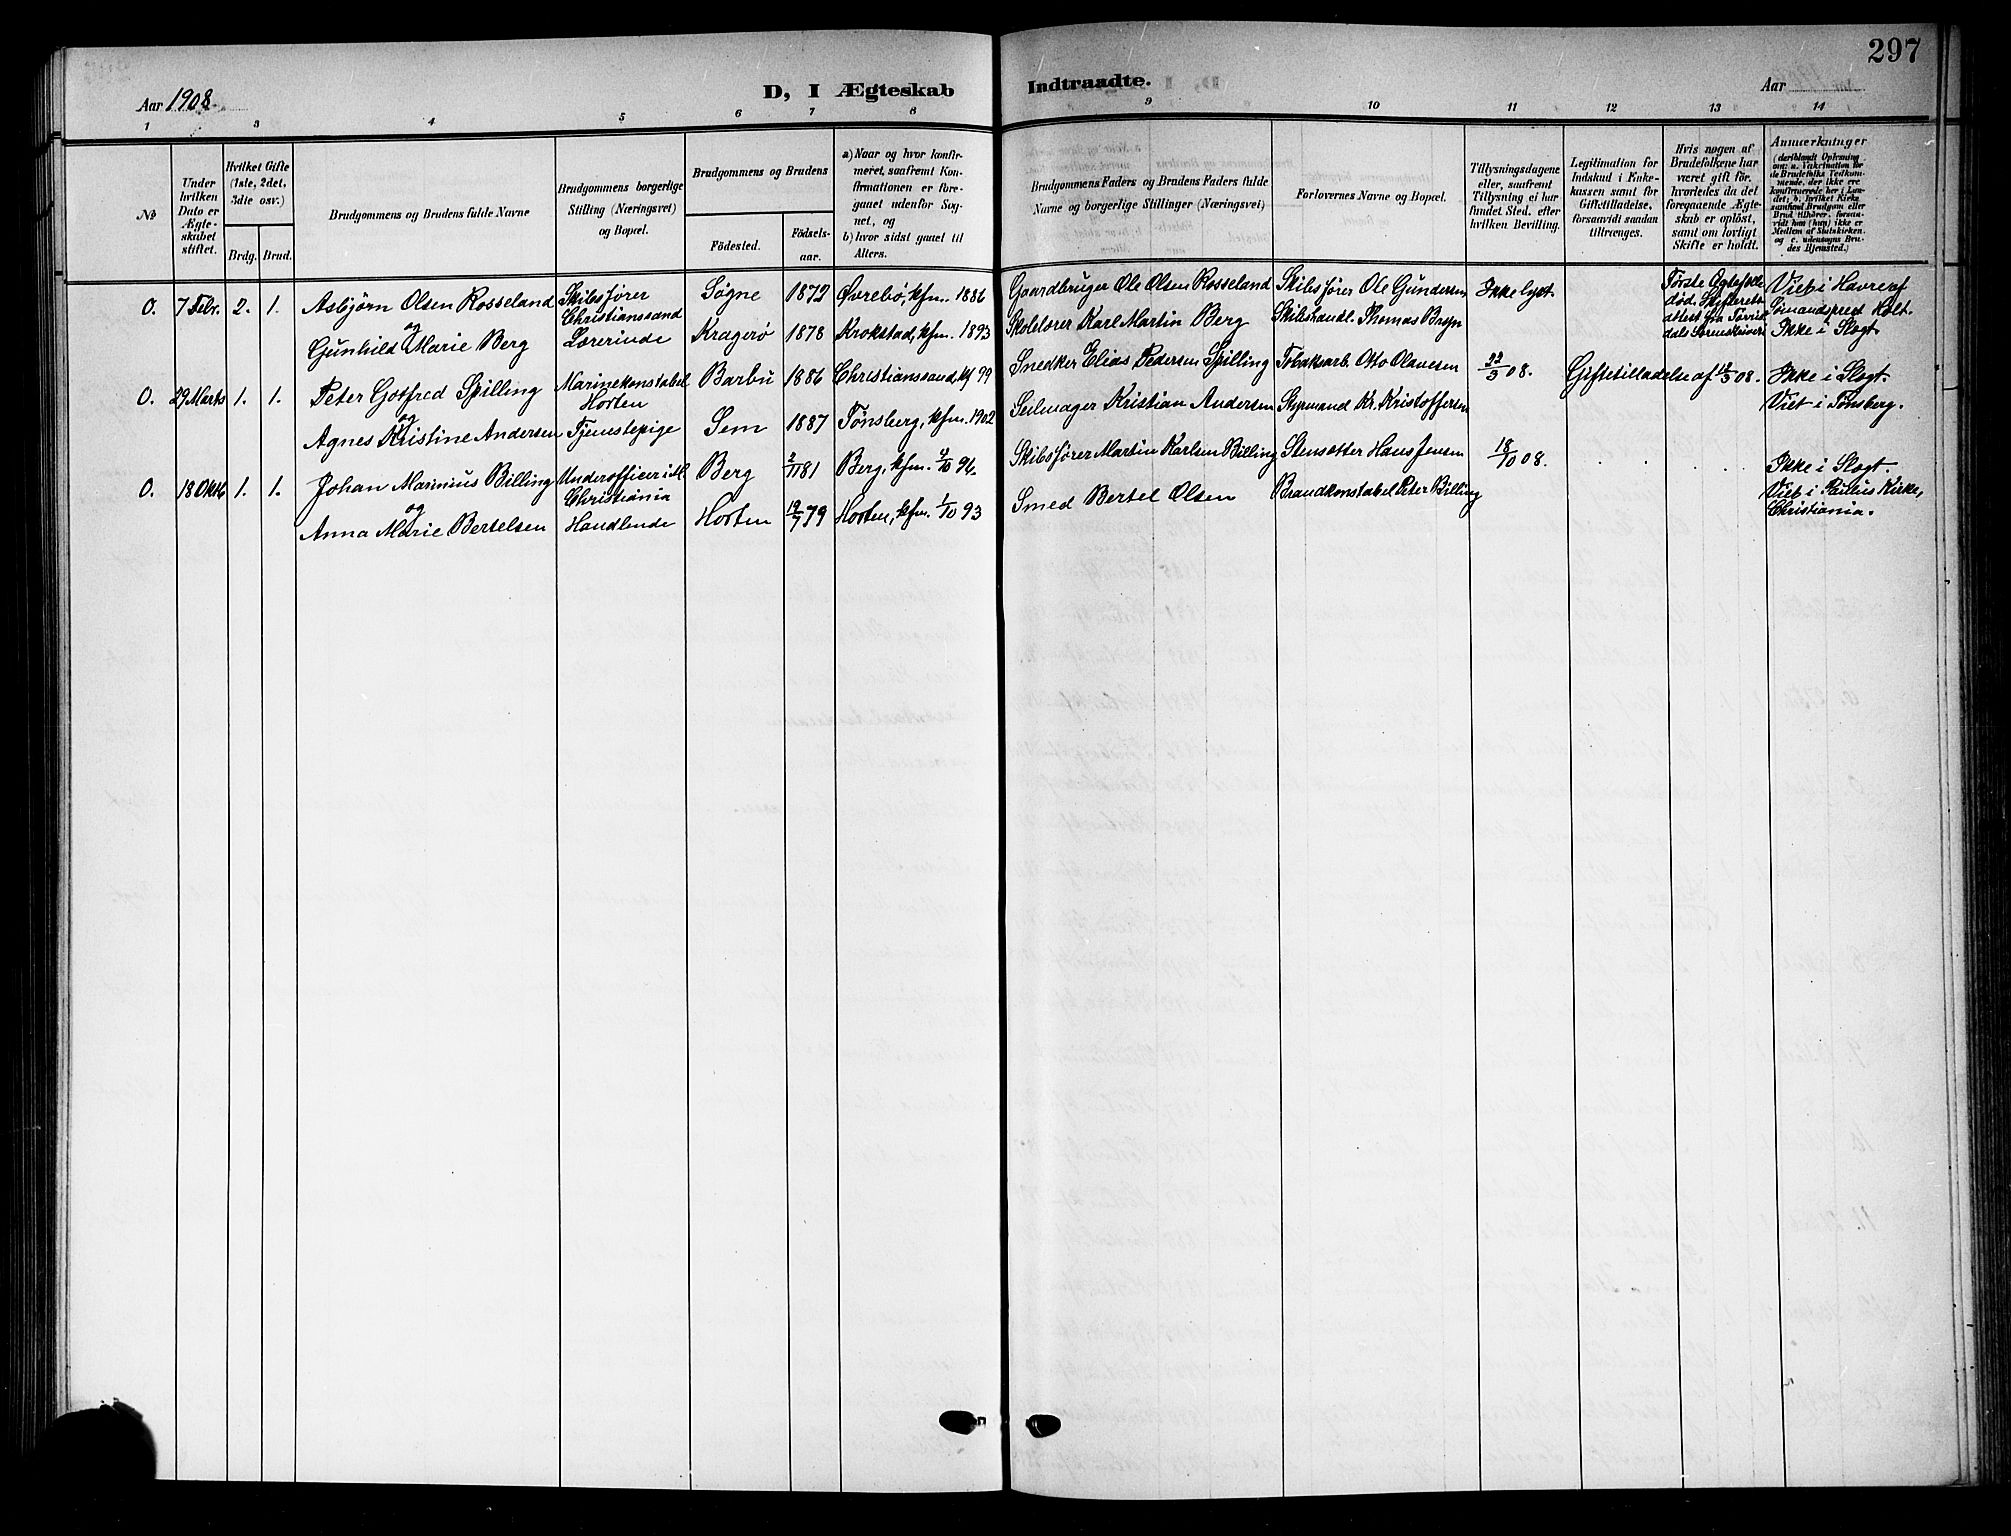 297
Aar 1908.
D, I Ægteskab
Indtraadte.
Aar
1 3 4 5 6 7 8 9 10 11 12 13 14
№
Under hvilken Dato er Ægteskabet stiftet.
Hvilket Gifte (1ste, 2det, 3die osv.)
Brdg. Brud.
Brudgommens og Brudens fulde Navne
Brudgommens borgerlige Stilling (Næringsvei) og Bopæl.
Brudgommens og Brudens
Födested.
Födselsaar.
a) Naar og hvor konfirmeret, saafremt Konfirmationen er foregaaet udenfor Sognet, og
b) hvor sidst gaaet til Alters.
Brudgommens Faders og Brudens Faders fulde Navne og borgerlige Stillinger (Næringsvei)
Forlovernes Navne og Bopæl.
Tillysningsdagene eller, saafremt Tillysning ei har fundet Sted, efter hvilken Bevilling.
Legitimation for Indskud i Enkekassen samt for Giftetilladelse, forsaavidt saadan tiltrænges.
Hvis nogen af Brudefolkene har været gift för, hvorledes da det foregaaende Ægteskab er oplöst, samt om lovligt Skifte er holdt.
Anmærkninger
O. 7 Febr. 2. 1. Asbjørn Olsen Rosseland Skibsfører Christianssand Søgne 1872 Øvrebø, kfm. 1886 Gaardbruger Ole Olsen Rosseland Skibsfører Ole Gundersen Ikke lyst. Første Ægtefælle død. Viet i Havre af Sømandsprest Holt.
og
Gunhild Marie Berg Lærerinde Kragerø 1878 Krokstad, kfm. 1893 Skolelærer Karl Martin Berg Skibshandl. Thomas Bryn Ikke i Slegt.
O. 29 Marts 1. 1. Peter Gotfred Spilling Marinekonstabel Horten Barbu 1886 Christianssand, kf 99 Snedker Elias Pedersen Spilling Tobaksarb. Otto Olavesen 22/3 08. Giftetilladelse af 12/3 08. Ikke i Slegt.
og
Agnes Kristine Andersen Tjenestepige Sem 1887 Tønsberg, kfm. 1902 Seilmager Kristian Andersen Styrmand Kr. Kristoffersen Viet i Tønsberg.
O. 18 Oktb 1. 1. Johan Marinius Billing Underofficer Christiania Berg 2/11 81 Berg, kfm. 4/10 96. Skibsfører Martin Karlsen Billing Stensetter Hans Jensen 18/10 08. Ikke i Slegt.
og
Anna Marie Bertelsen Handlende Horten 19/7 79 Horten, kfm. 1/10 93 Smed Bertel Olsen Brandkonstabel Peter Billing Viet i Paulus Kirke, Christiania.